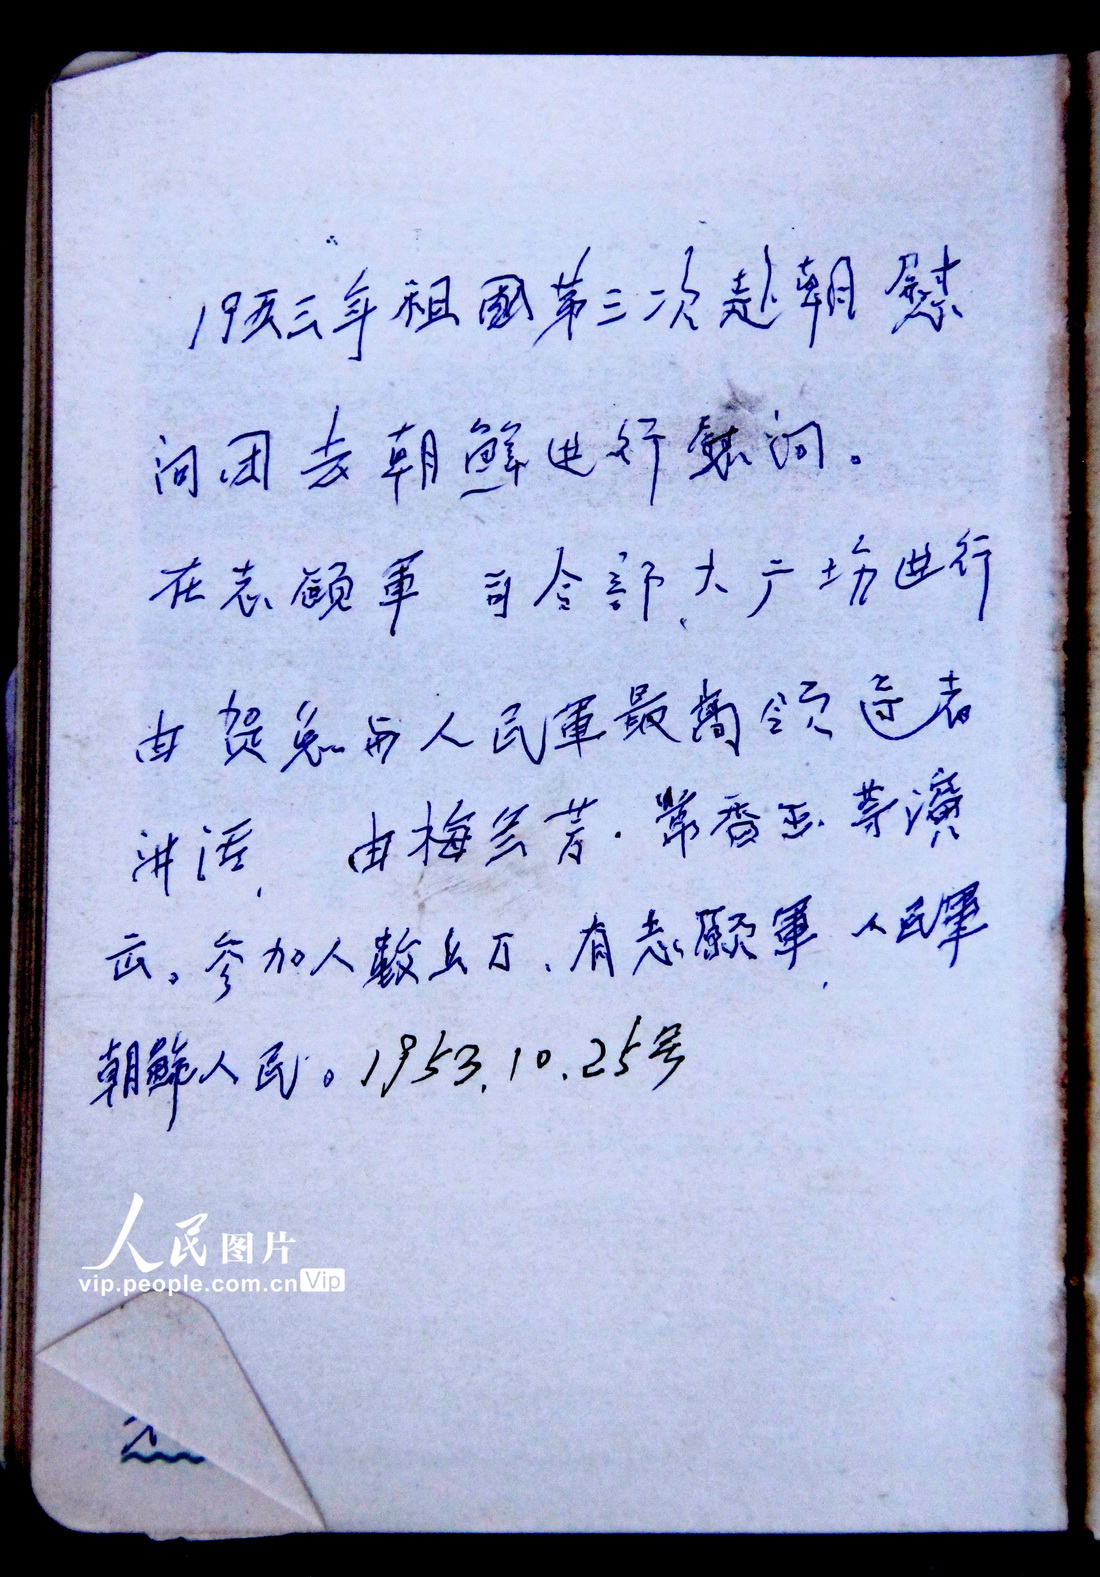 19五三年祖國第三次赴朝慰
问团去朝鮮进行慰问。
在志願軍司令部大广场进行
由贺龙与人民軍最高领导者
讲话，由梅兰芳·常香玉等演
出。参加人数五万、有志願軍、人民軍
朝鮮人民。1953.10.25号
人民图片
vip.people.com.cn Vip